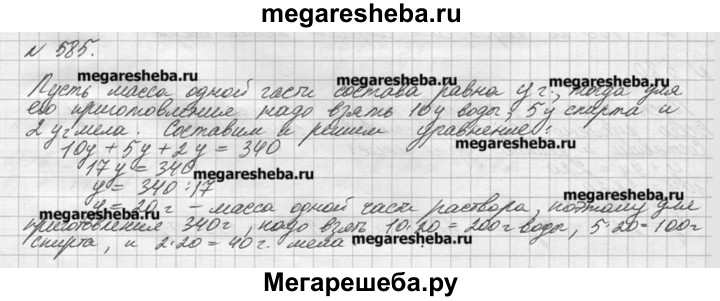 megaresheba.ru
N 585.
megaresheba.ru megaresheba.ru megaresheba.ru
Пусть масса одной части состава равна y г., тогда для
его приготовления надо взять 10y воды, 5y спирта и
2y г мела. Составим и решим уравнение:
10y + 5y + 2y = 340
megaresheba.ru
17y = 340
megaresheba.ru
y = 340:17
megaresheba.ru
y = 20 г - масса одной части раствора, поэтому для
приготовления 340 г, надо взять 10·20=200 г воды, 5·20=100 г
спирта, и 2·20=40 г. мела
megaresheba.ru megaresheba.ru
Мегарешеба.ру